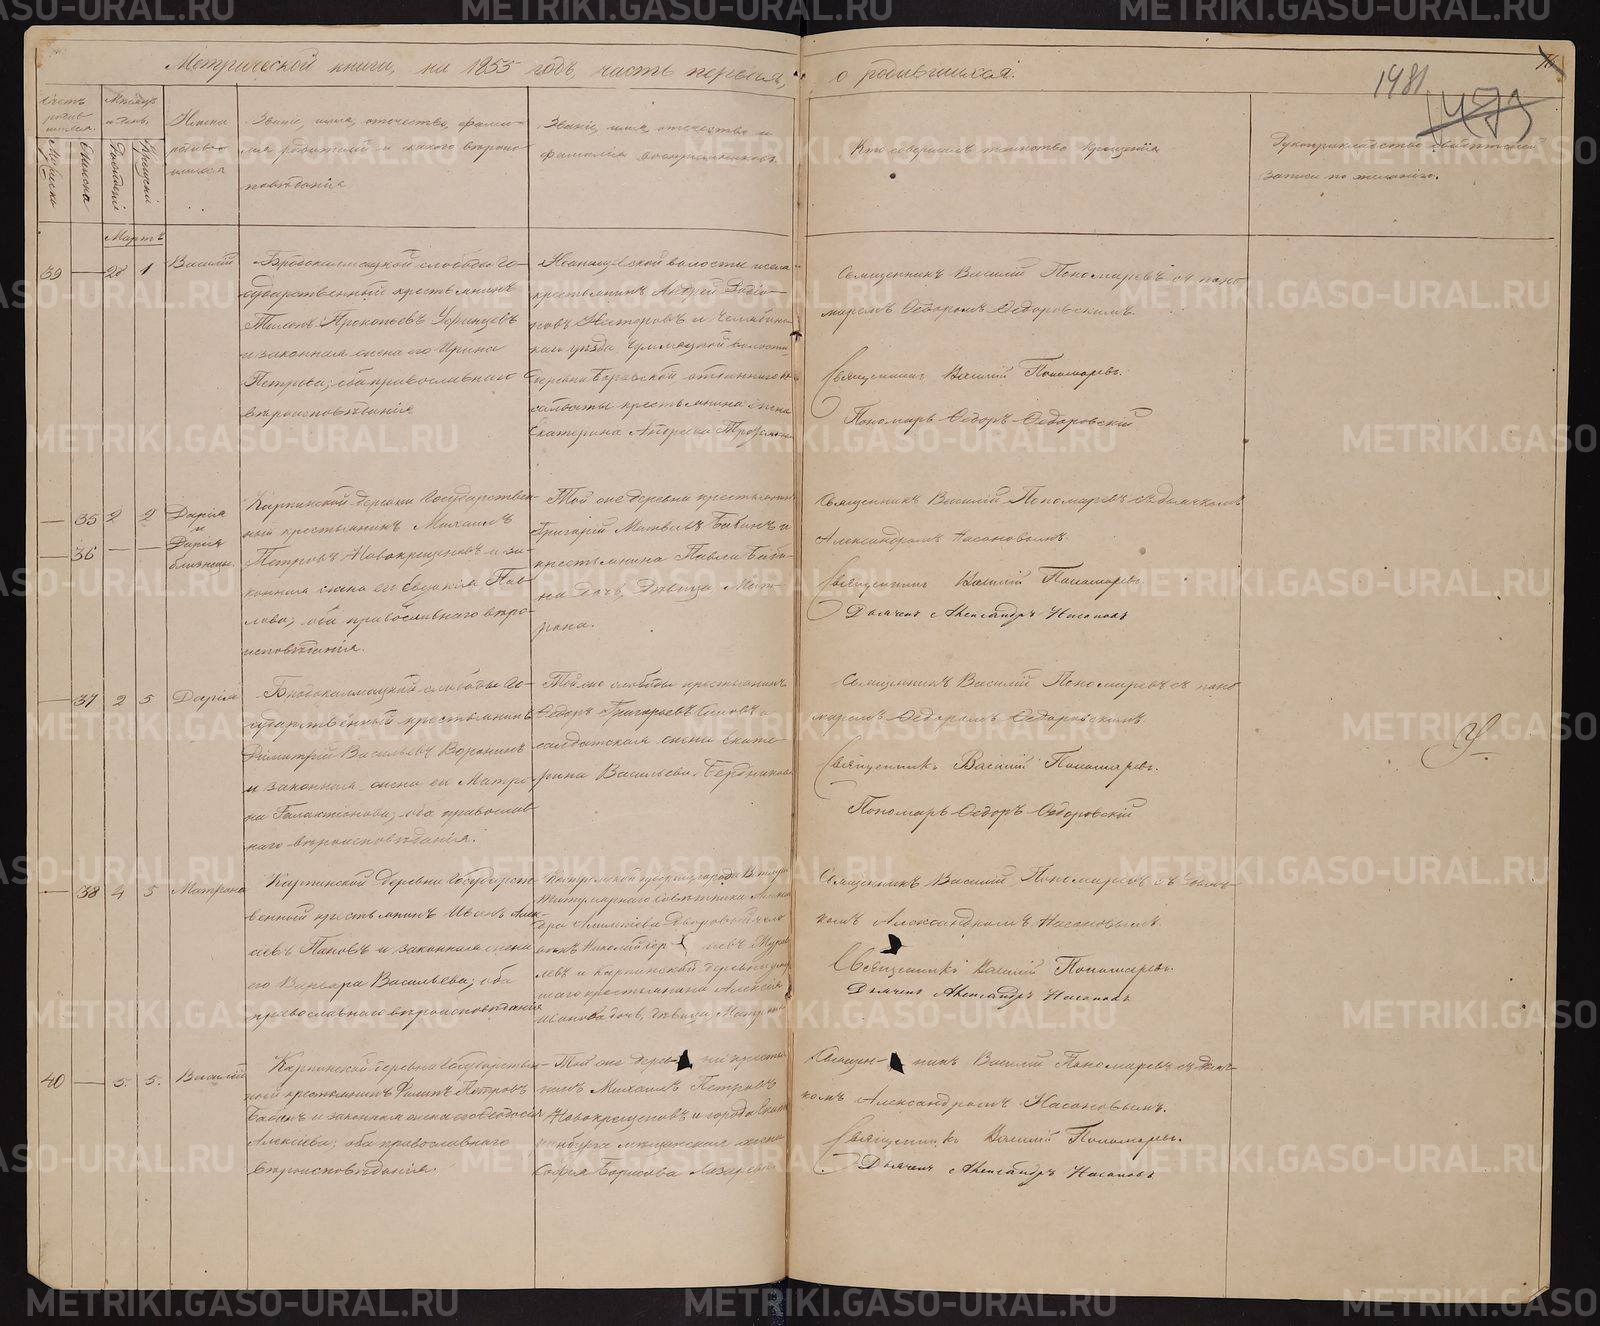 Метрической книги, на 1855 годъ, часть первая, о родившихся.
1481
Счетъ родившихся.
Мужеска
Женска
Мѣсяцъ и день.
Рожденія
Крещенія
Имена родившихся
Званіе, имя, отечество, фами-
лія родителей и какого вѣроис-
повѣданія
Званіе, имя, отчество и
фамилія воспріемниковъ.
Кто совершалъ таинство крещенія
Рукоприкладство свидѣтелей
записи по желанію.
Мартъ
39 — 28 1 Василій
Бродокалмацкой слободы Го-
сударственный крестьянинъ
Прокопьевъ
и законная жена его Ирина
Петрова; оба православнаго
вѣроисповѣданія
волости
крестьянинъ Андрей
Нестеровъ и Челябинс-
каго уѣзда волости
деревни
крестьянина жена
Екатерина Андреева
Священникъ Василій Пономаревъ съ поно-
маремъ Ѳедоромъ Ѳедоровскимъ.
Священникъ Василій Пономаревъ.
Пономарь Ѳедоръ Ѳедоровскій
— 35 2 2 Дарія
и
— 36 — — Дарія
близнецы.
Карпинской деревни Государствен-
ный крестьянинъ Михаилъ
Петровъ Новокрещеновъ и за-
конная жена его Евдокія Пав-
лова; оба православнаго вѣро-
исповѣданія.
Той же деревни крестьянинъ
Григорій Матвѣевъ Бабинъ и
крестьянина Павла Баби-
на дочь, дѣвица Мат-
рона.
Священникъ Василій Пономаревъ съ дьячкомъ
Александромъ Насоновымъ.
Священникъ Василій Пономаревъ.
Дьячекъ Александръ Насоновъ
— 37 2 5 Дарія
Бродокалмацкой слободы Го-
сударственный крестьянинъ
Димитрій Васильевъ Воронинъ
и законная жена его Матро-
на Галактіонова; оба православ-
наго вѣроисповѣданія.
Той же слободы крестьянинъ
Ѳедоръ Григорьевъ
солдатская жена Екате-
рина Васильева Бердникова
Священникъ Василій Пономаревъ съ поно-
маремъ Ѳедоромъ Ѳедоровскимъ.
Священникъ Василій Пономаревъ.
Пономарь Ѳедоръ Ѳедоровскій
— 38 4 5 Матрона
Карпинской деревни Государст-
венный крестьянинъ Иванъ Алек-
сѣевъ Пановъ и законная жена
его Варвара Васильева; оба
православнаго вѣроисповѣданія
Костромской губерніи города
Титулярнаго Совѣтника
дворовый чело-
вѣкъ Николай
и Карпинской деревни
крестьянина Алексѣя
Иванова дочь, дѣвица Матрона
Священникъ Василій Пономаревъ съ дьяч-
комъ Александромъ Насоновымъ.
Священникъ Василій Пономаревъ.
Дьячекъ Александръ Насоновъ
40 — 5. 5. Василій
Карпинской деревни Государствен-
ной крестьянинъ Филипъ Петровъ
Бабинъ и законная жена его Ѳедосья
Алексѣева; оба православнаго
вѣроисповѣданія.
Той же деревни крестья-
нинъ Михаилъ Петровъ
Новокрещеновъ и города Екате-
ринбурга мѣщанская жена
Софія Борисова Лазарева
Священникъ Василій Пономаревъ съ дьяч-
комъ Александромъ Насоновымъ.
Священникъ Василій Пономаревъ.
Дьячекъ Александръ Насоновъ
METRIKI.GASO-URAL.RU